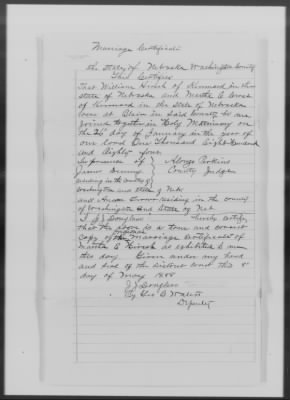 Marriage Certificate
the State of Nebraska Washington County
This Certifies
That William Hirsh of Kennard in the
state of Nebraska and Martha E Cross
of Kennard in the State of Nebraska
were at Blair in said County by me
joined together in Holy Matrimony on
the 26 day of January in the year of
our Lord One Thousand Eight Hundred
and Eighty four
In presence of } Alonzo Perkins
James } County Judge
residing in the county of
Washington and State of Neb
and residing in the county
of Washington and State of Neb
I J J Douglass hereby certify
that the above is a true and correct
Copy of the original Marriage Certificate of
Martha E Hirsh as exhibited to me
this day. Given under my hand
and seal of the District Court this 8
day of May 1888
J J Douglass
By Geo B
Deputy